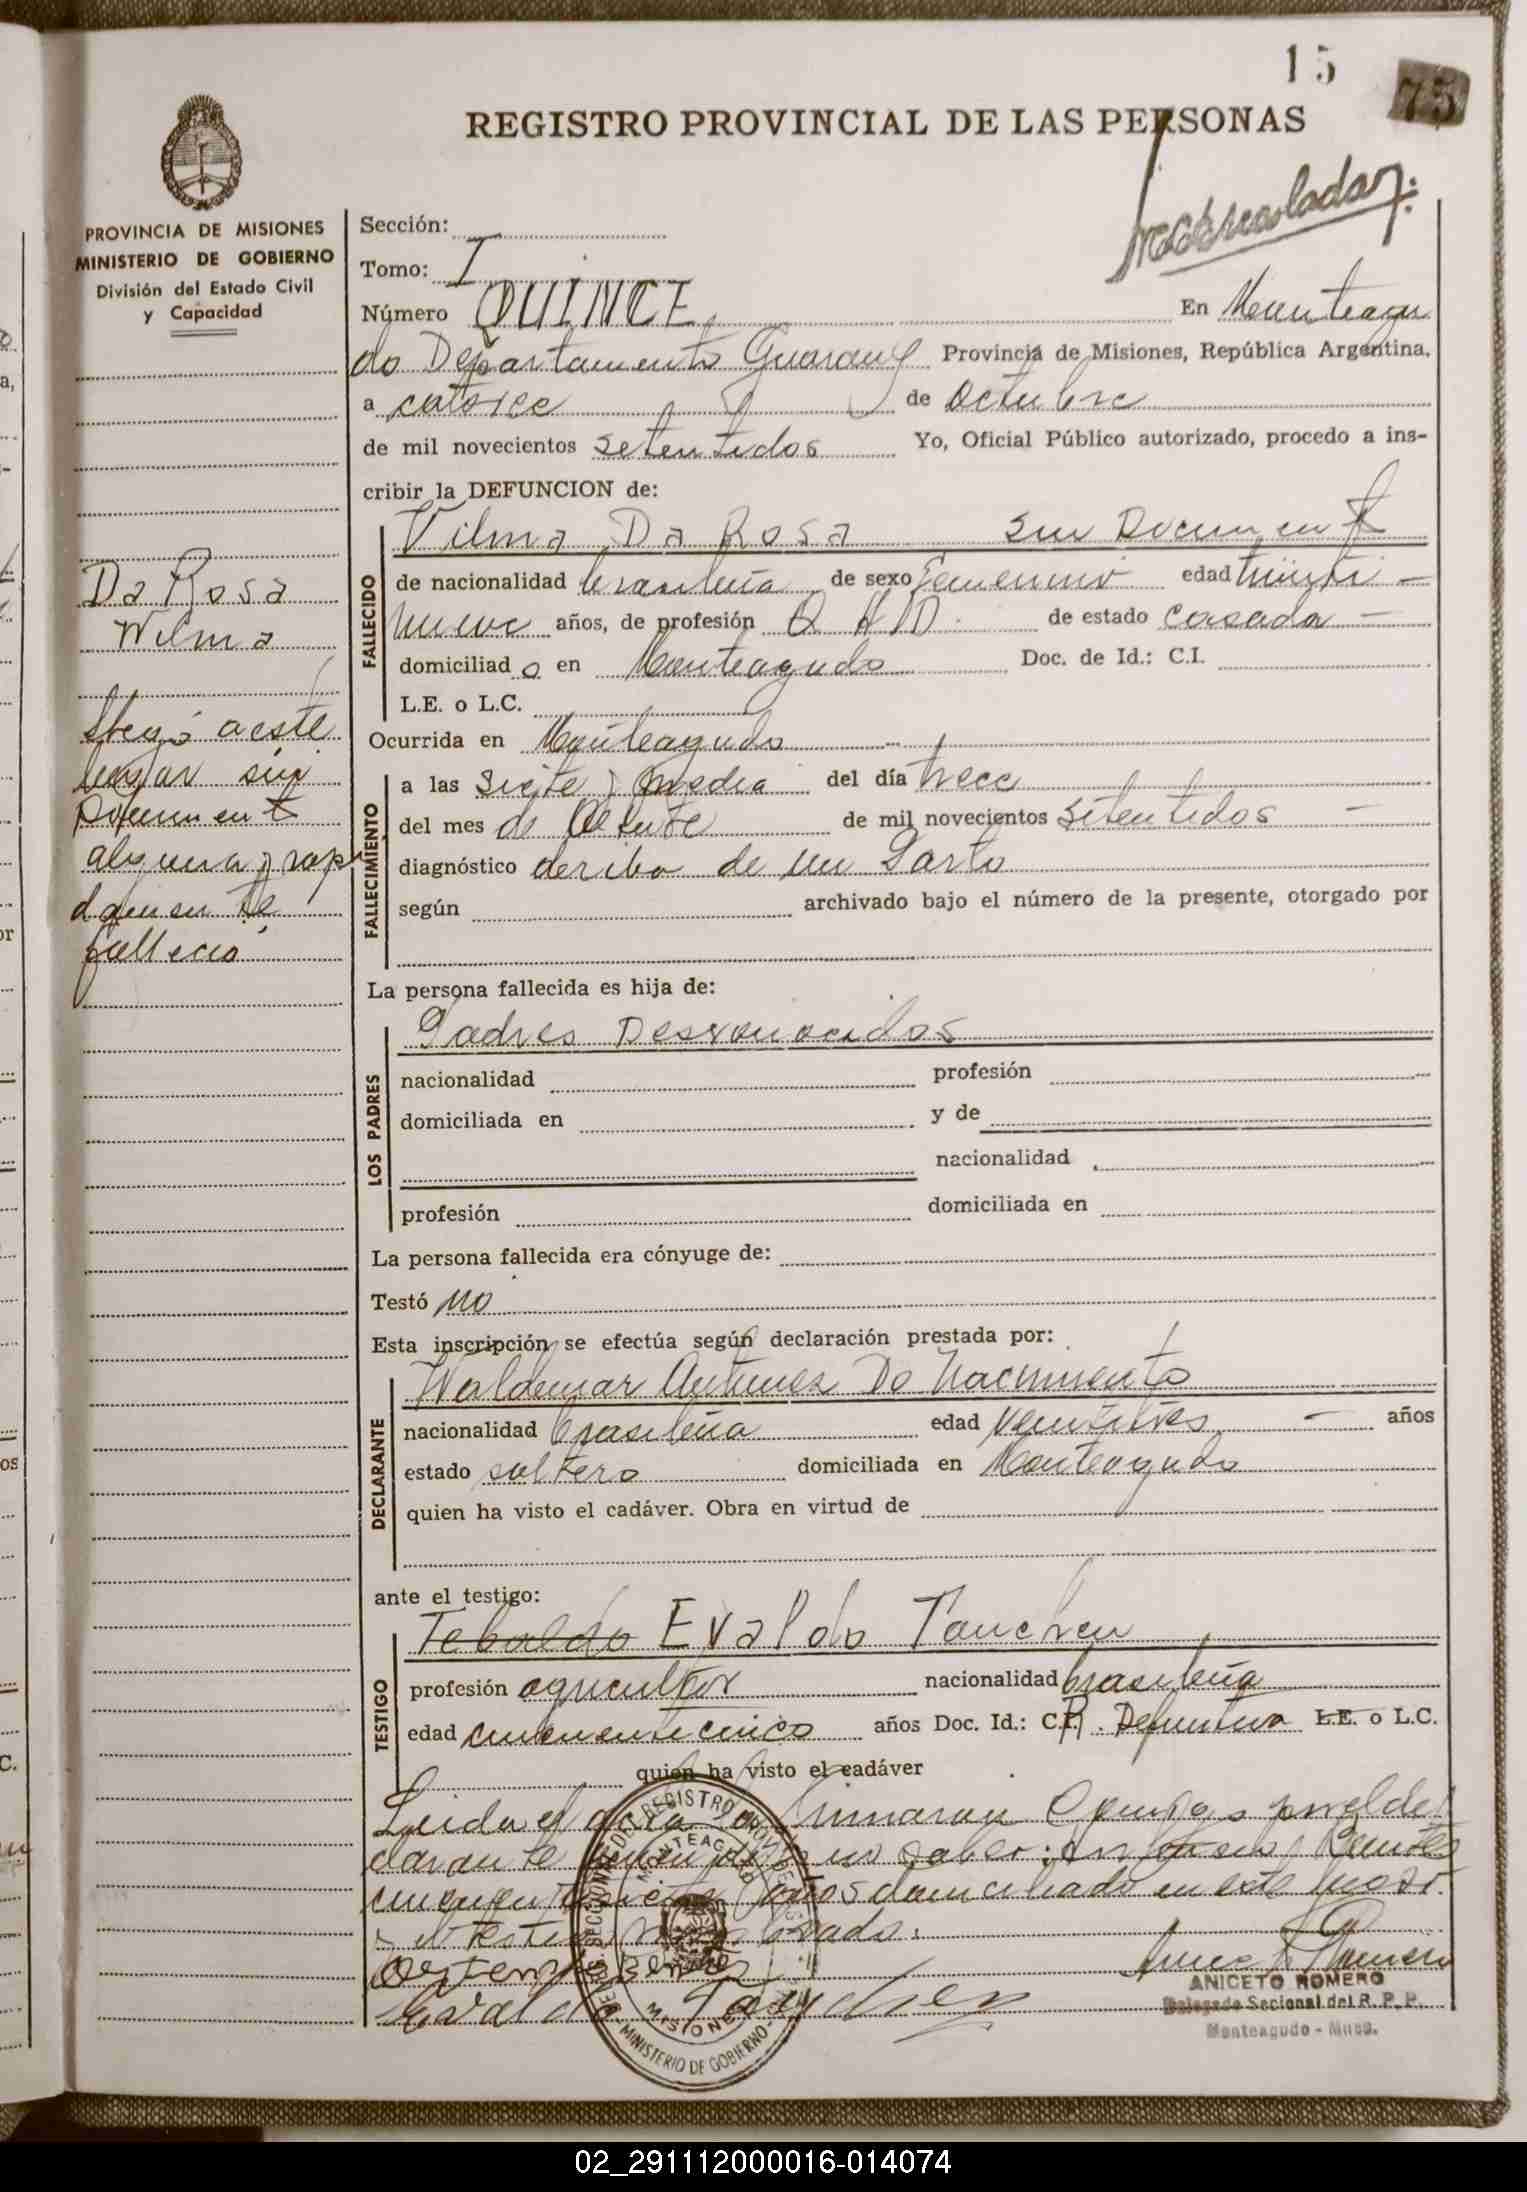 15
75
REGISTRO PROVINCIAL DE LAS PERSONAS
PROVINCIA DE MISIONES
MINISTERIO DE GOBIERNO
División del Estado Civil
y Capacidad
Da Rosa
Wilma
llegó a este
lugar sin
Document
alguna y rapi
damente
falleció
Sección:
Tomo: I
Número QUINCE En Monteagu
do Departamento Guaraní Provincia de Misiones, República Argentina,
a catorce de Octubre
de mil novecientos setentidos Yo, Oficial Público autorizado, procedo a ins-
cribir la DEFUNCION de:
FALLECIDO
Vilma Da Rosa sin Document
de nacionalidad brasileña de sexo Femenino edad treinti -
nueve años, de profesión Q H D. de estado casada -
domiciliad o en Monteagudo Doc. de Id.: C.I.
L.E. o L.C.
Ocurrida en Monteagudo
FALLECIMIENTO
a las siete y media del día trece
del mes de Octubre de mil novecientos setentidos -
diagnóstico deriba de un Parto
según archivado bajo el número de la presente, otorgado por
La persona fallecida es hija de:
LOS PADRES
Padres Desconocidos
nacionalidad profesión
domiciliada en y de
nacionalidad
profesión domiciliada en
La persona fallecida era cónyuge de:
Testó no
Esta inscripción se efectúa según declaración prestada por:
DECLARANTE
Waldemar Antunes Do Nacimiento
nacionalidad brasileña edad ventitres - años
estado soltero domiciliada en Monteagudo
quien ha visto el cadáver. Obra en virtud de
ante el testigo:
TESTIGO
Tebaldo Evaldo Tauchen
profesión agricultor nacionalidad brasileña
edad cincuenticinco años Doc. Id.: C.P. R. Definitiva L.E. o L.C.
quien ha visto el cadáver
Leida el acta la firmaran a por el de
clarante no saber: Benites
años domiciliado en este
y el testigo
Benites
Evaldo Tauchen
ANICETO ROMERO
Delegado Secional del R. P. P.
Monteagudo - Mnes.
REGISTRO
MONTEAGUDO
MISIONES
MINISTERIO DE GOBIERNO
02_291112000016-014074